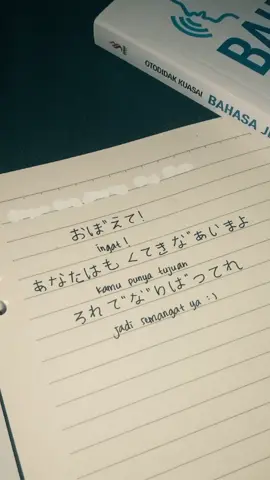 OTODIDAK KUASAI
BAHASA J
おぼえて!
ingat!
あなたはもくてきながあいまよ
kamu punya tujuan
それでながりばつてれ
jadi semangat ya :)